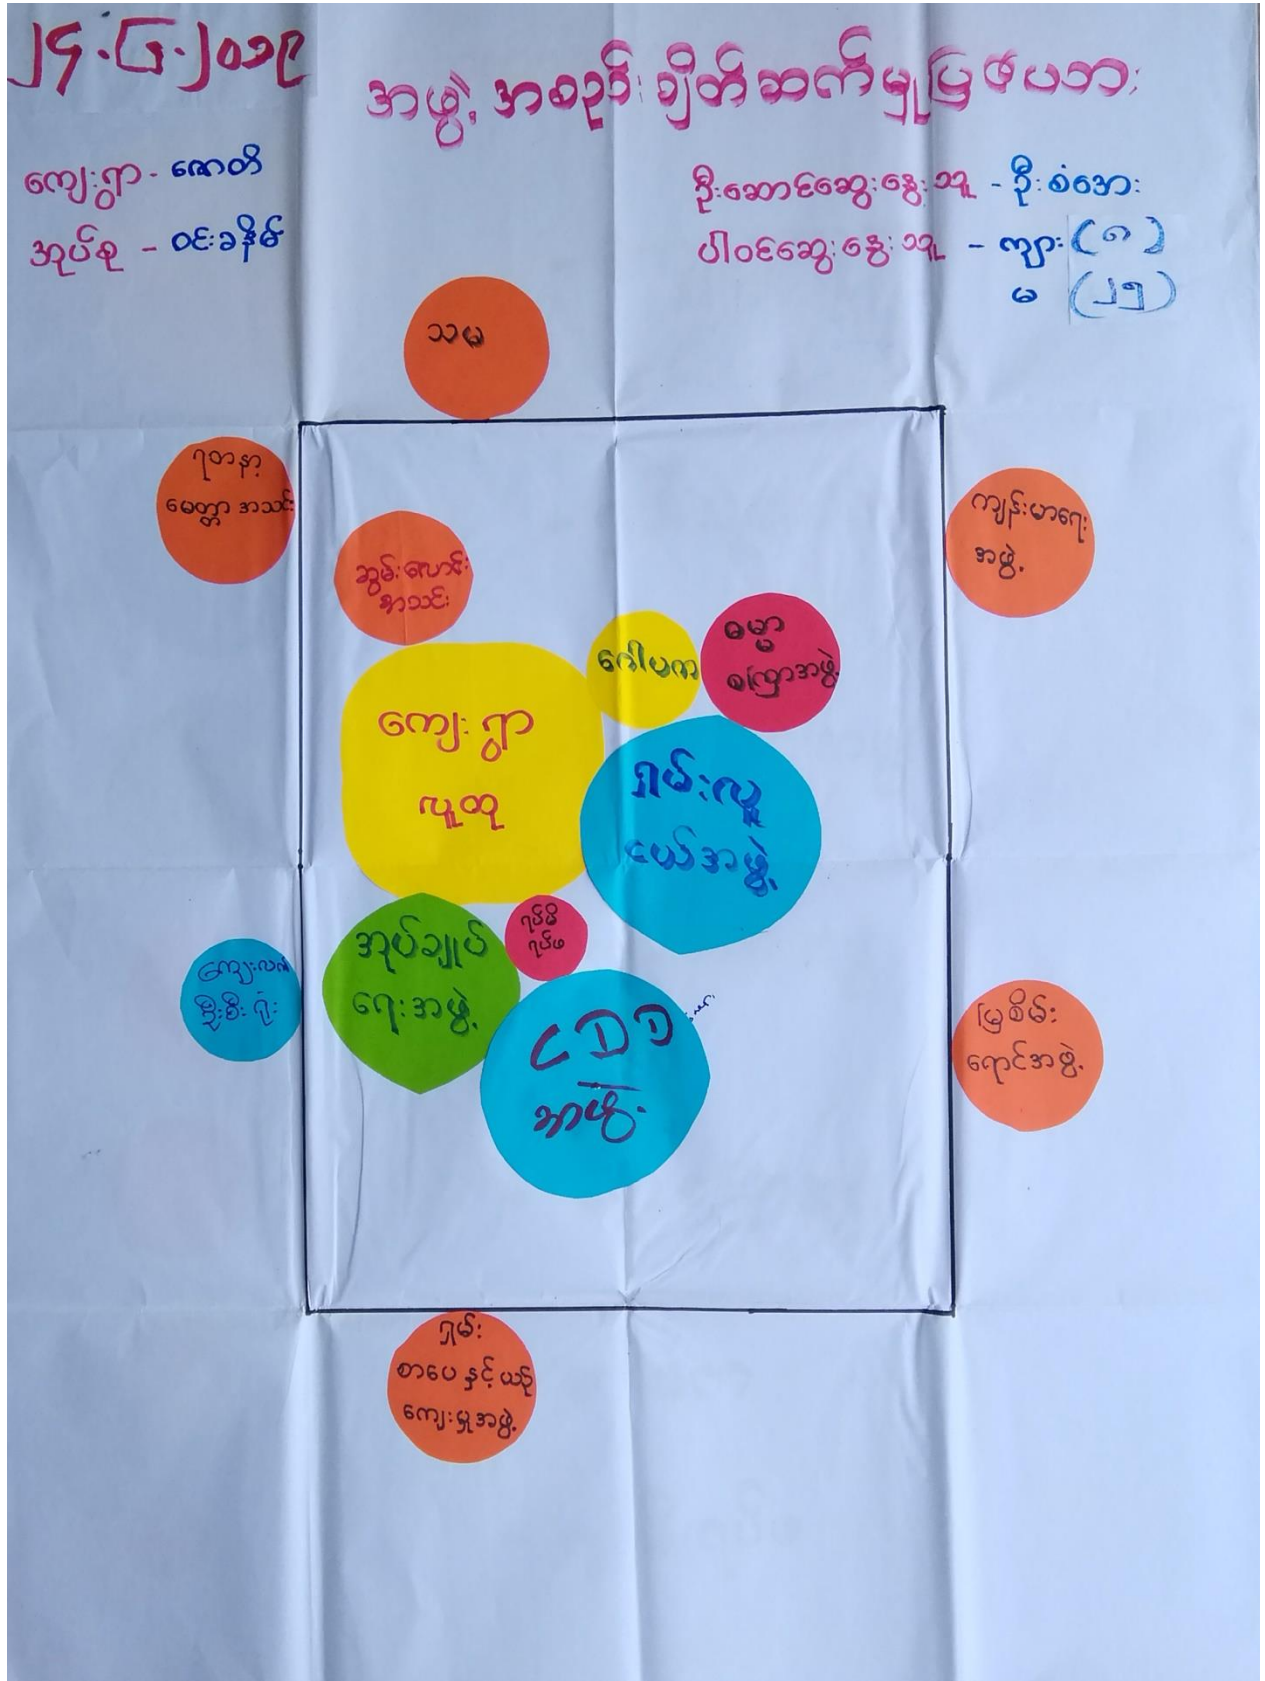 ၂၄.၆.၂၀၁၉
အဖွဲ့အစည်းချိတ်ဆက်မှုပြဇယား
ကျေးရွာ - ဇောတိ
အုပ်စု - ဝင်းခနိမ်
ဦးဆောင်ဆွေးနွေးသူ - ဦးစံအေး
ပါဝင်ဆွေးနွေးသူ - ကျား (၈)
မ (၂၅)
သမ
ရတနာ့
မေတ္တာအသင်း
ကျန်းမာရေး
အဖွဲ့
ဆွမ်းလောင်း
အသင်း
ဂေါပက
ဓမ္မာ
စကြာအဖွဲ့
ကျေးရွာ
လူထု
ရှမ်းလူ
ငယ်အဖွဲ့
အုပ်ချုပ်
ရေးအဖွဲ့
ရပ်မိ
ရပ်ဖ
ကျေးလက်
ဦးစီးရုံး
CDD
အဖွဲ့
မြစိမ်း
ရောင်အဖွဲ့
ရှမ်း
စာပေနှင့်ယဉ်
ကျေးမှုအဖွဲ့